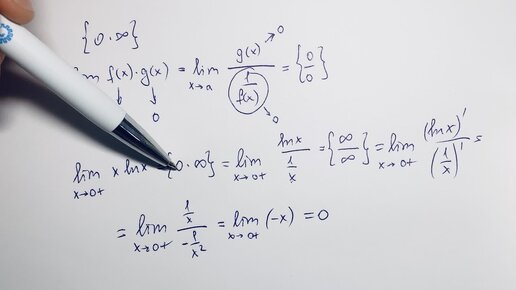 {0·∞}
lim f(x)·g(x) = lim x→a g(x) / (1/f(x)) = {0/0}
↓ ↓ 0 → 0 → 0
lim x→0+ x ln x {0·∞} = lim x→0+ ln x / (1/x) = {∞/∞} = lim x→0+ (ln x)' / (1/x)' =
= lim x→0+ (1/x) / (-1/x²) = lim x→0+ (-x) = 0